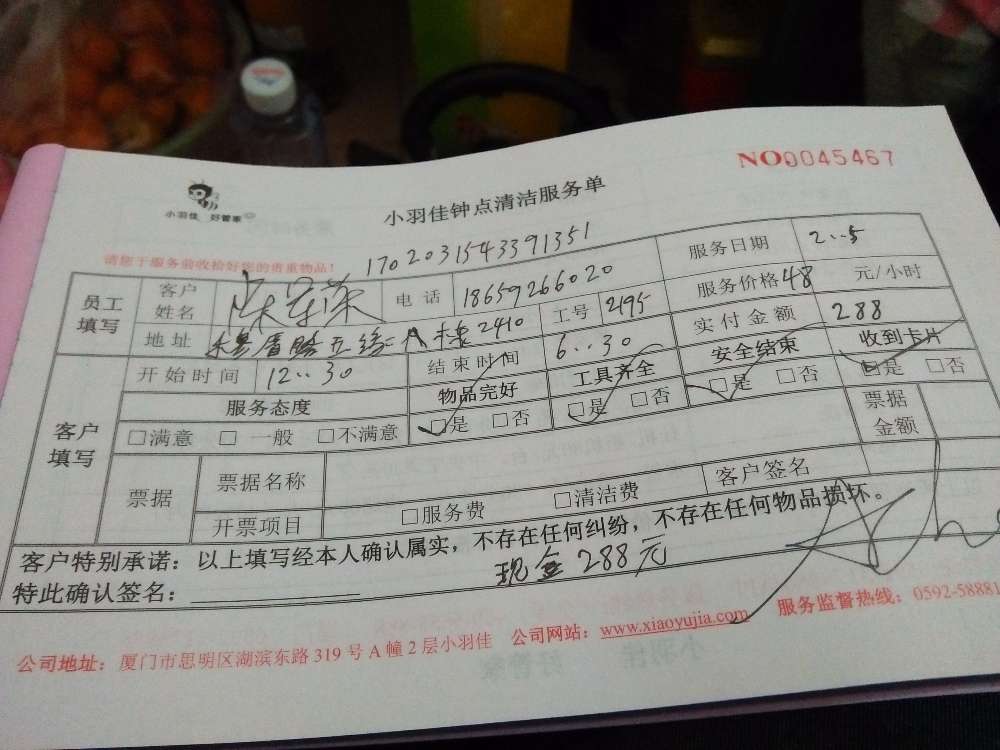 NO0045467
小羽佳 好管家
小羽佳钟点清洁服务单
请您于服务前收检好您的贵重物品!
1702031543391351
员工填写 客户姓名 电话 18659266020 服务日期 2..5
地址 2410 工号 2195 服务价格 48 元/小时
客户填写 开始时间 12..30 结束时间 6..30 实付金额 288
服务态度 物品完好 工具齐全 安全结束 收到卡片
□满意 □一般 □不满意 □是 □否 □是 □否 □是 □否 □是 □否
票据 票据名称 客户签名 票据金额
开票项目 □服务费 □清洁费
客户特别承诺:以上填写经本人确认属实,不存在任何纠纷,不存在任何物品损坏。
特此确认签名:
现金288元
公司地址:厦门市思明区湖滨东路319号A幢2层小羽佳 公司网站:www.xiaoyujia.com 服务监督热线:0592-58881